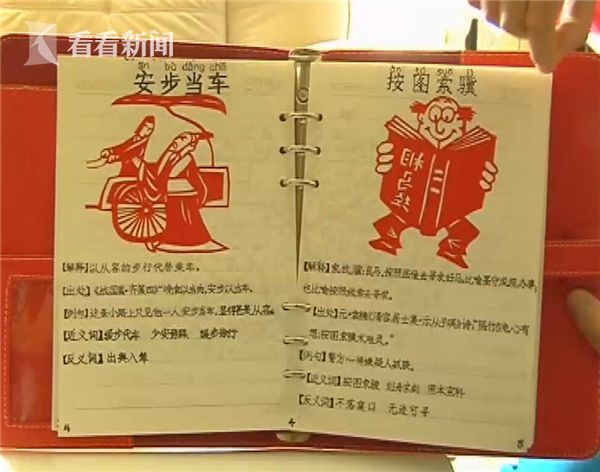 看看新闻
ān bù dàng chē
安步当车
【解释】以从容的步行代替乘车。
【出处】《战国策·齐策四》“晚食以当肉,安步以当车。
【例句】这条小路上只见他一人安步当车,显得甚是从容。
【近义词】缓步代车 少安毋躁 缓步徐行
【反义词】出舆入辇
4
按图索骥
【解释】索:找,骥:良马。按照画像去寻求好马。比喻墨守成规办事;
也比喻按照线索去寻求。
【出处】元·袁桷《清容居士集·示从子瑛》诗:“隔竹引龟心有
想,按图索骥术难灵。”
【例句】警方一张嫌疑人抓获。
【近义词】按图索骏 刻舟求剑 照本宣科
【反义词】不落窠臼 无迹可寻
4
5